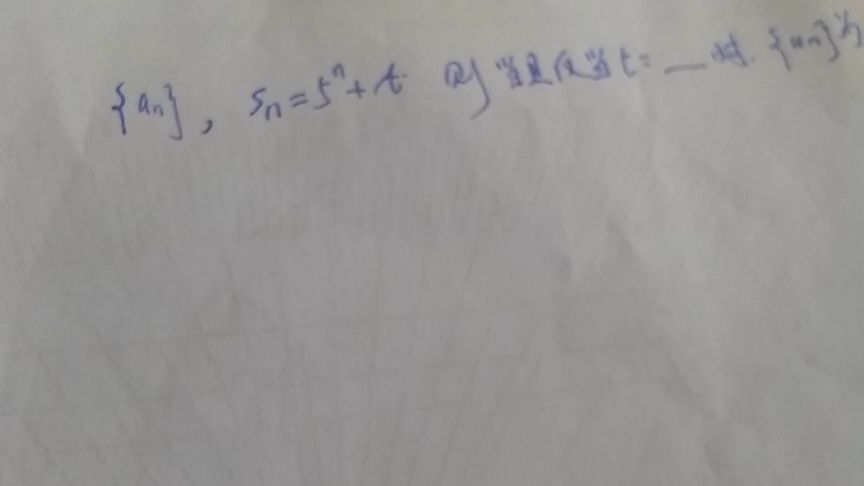 {an}, Sn=5^n+t 则当且仅当t=__时.{an}为